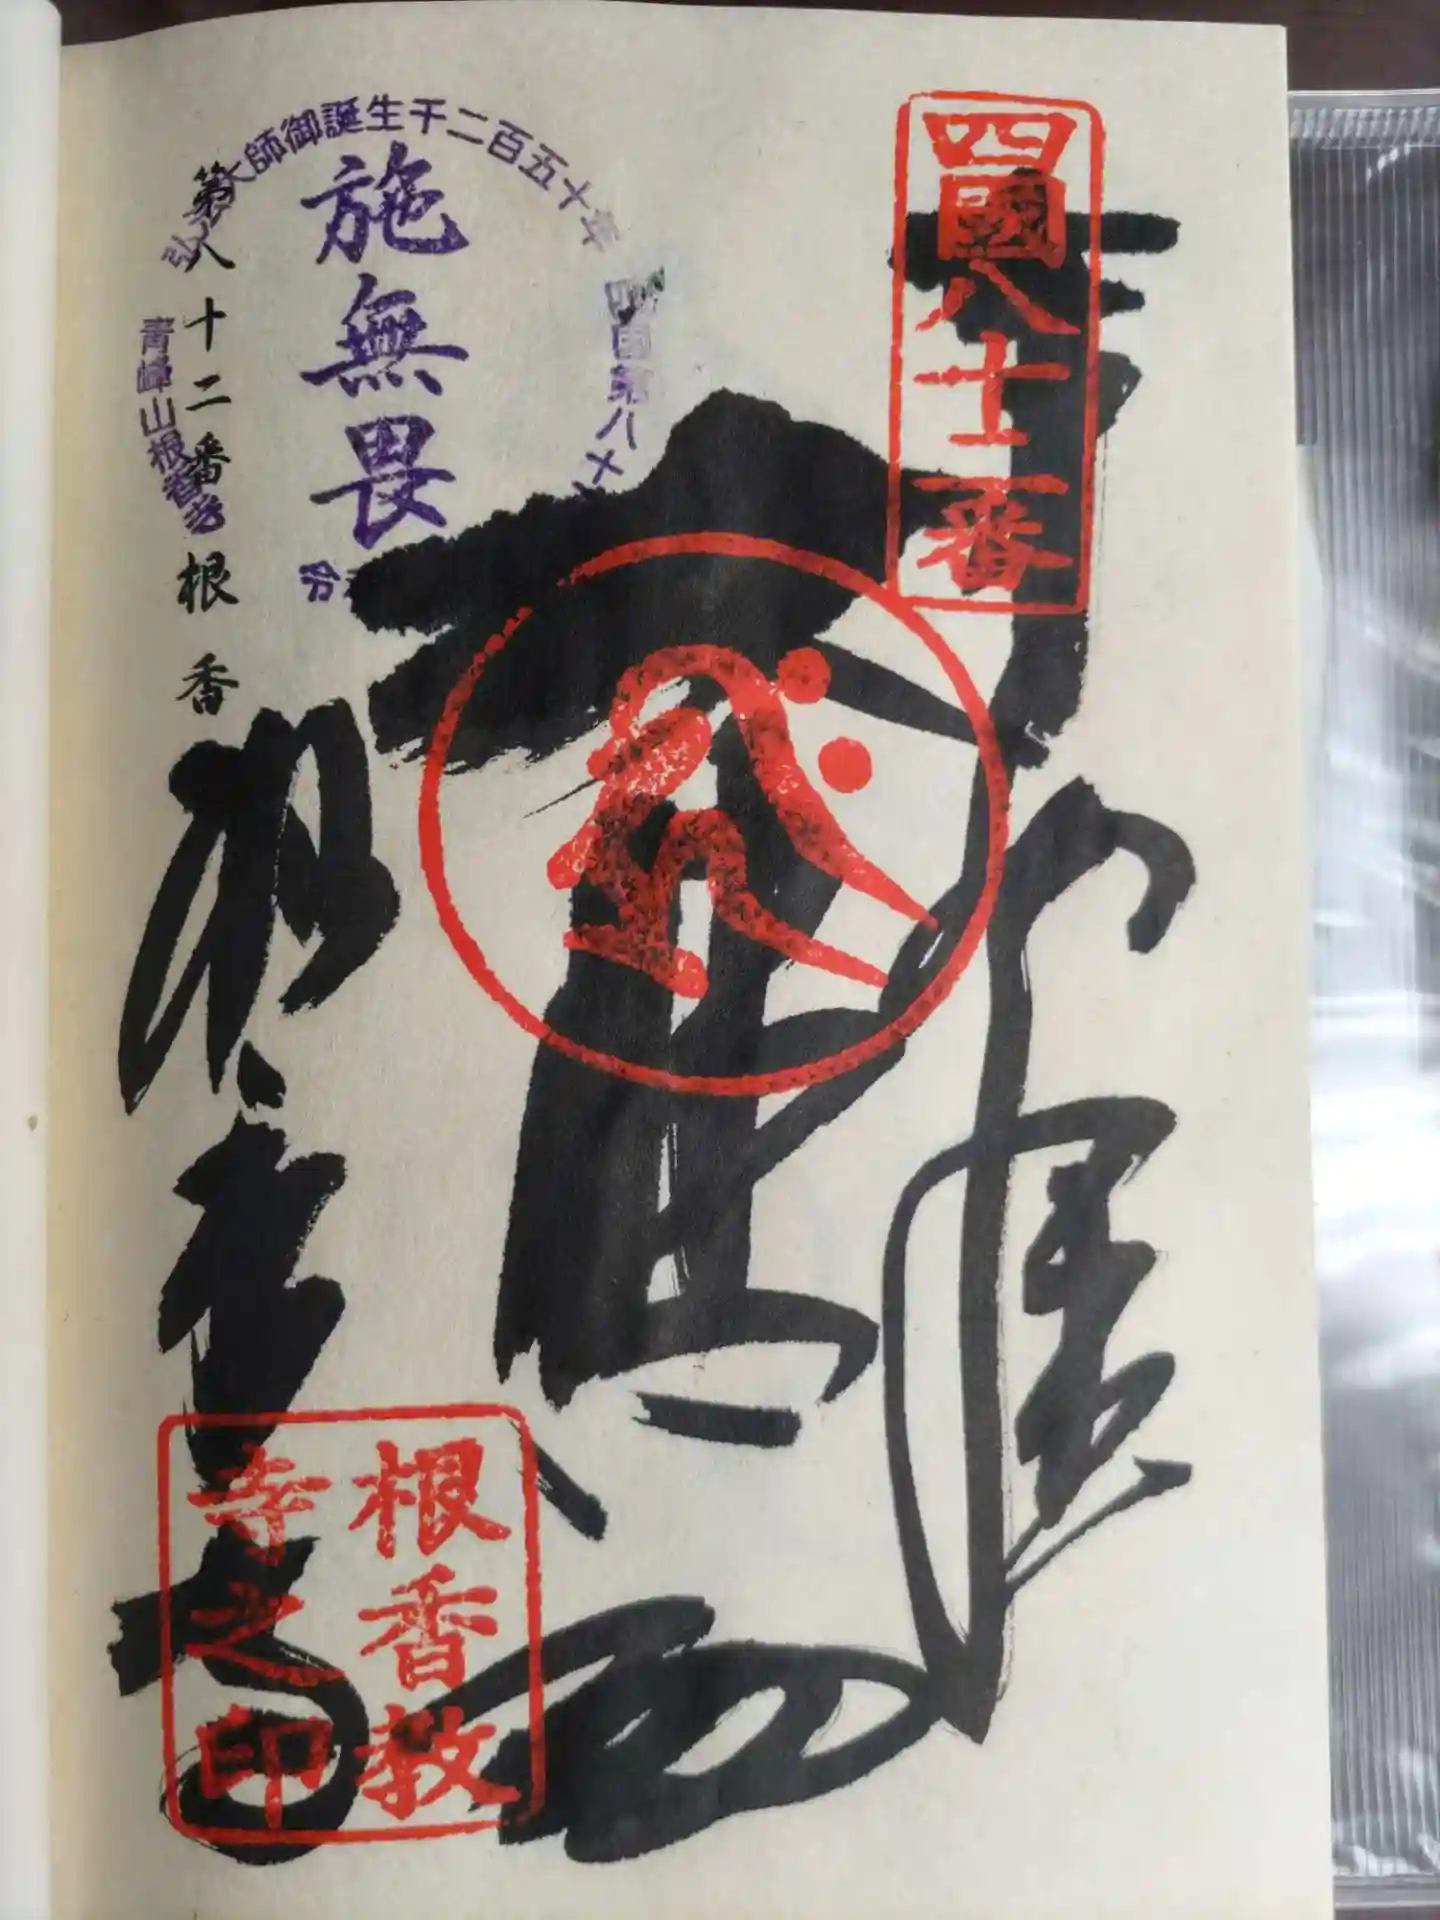 四國八十二番
奉拝
千手大悲閣
根香寺
根香教
寺之印
弘法大師御誕生千二百五十年
施無畏
四国第八十二
青峰山根香寺
第八十二番根香